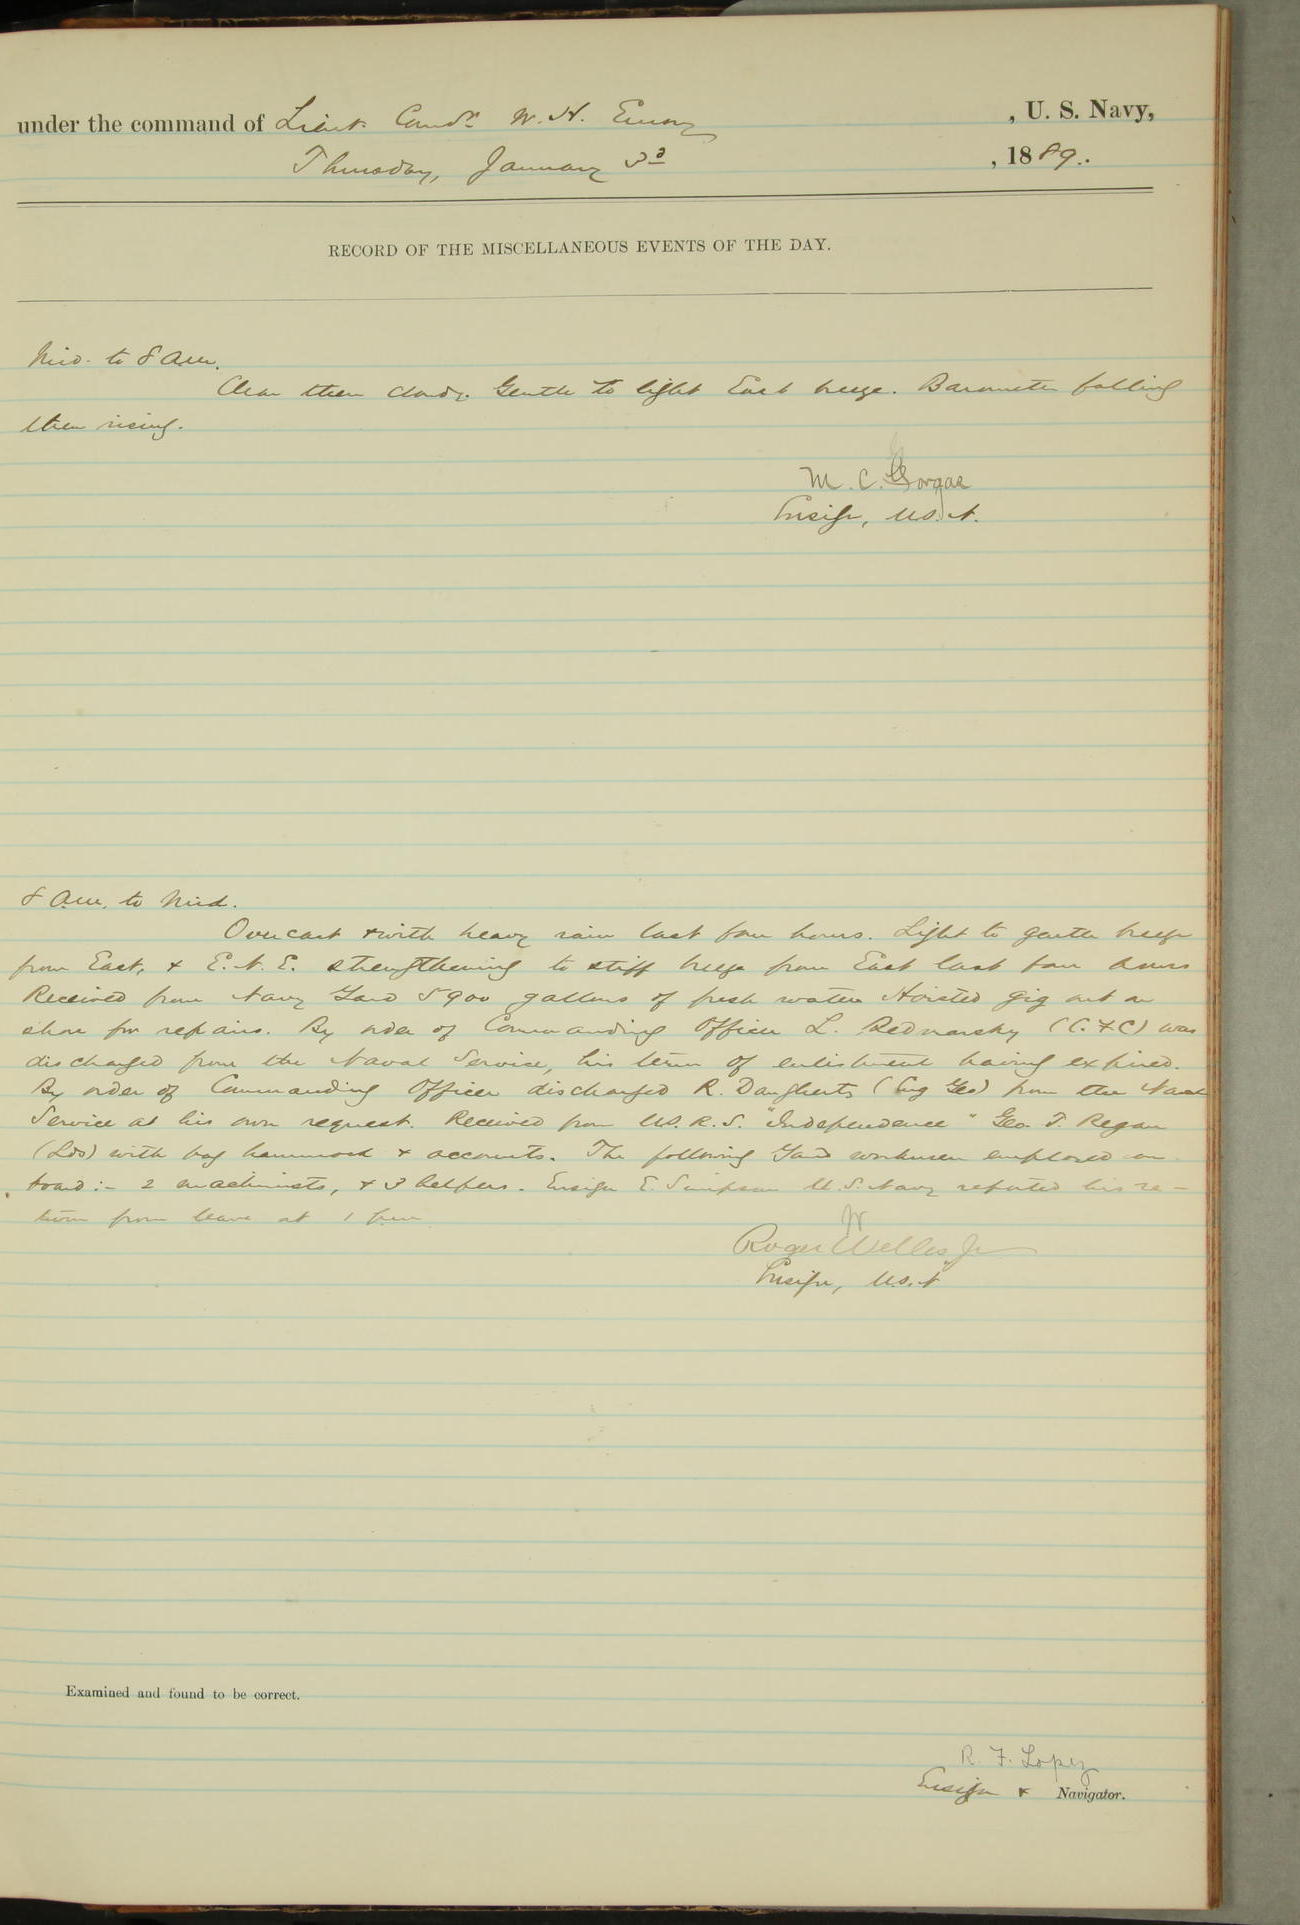 under the command of Lieut. Comdr. W. H. Emory, U. S. Navy,
Thursday, January 3d, 1889.
RECORD OF THE MISCELLANEOUS EVENTS OF THE DAY.
Mid. to 8 a.m.
Clear then cloudy. Gentle to light East breeze. Barometer falling
then rising.
M. C. Gorgas
Ensign, U.S.N.
8 a.m. to Mid.
Overcast & with heavy rain last four hours. Light to gentle breeze
from East, & E.N.E. strengthening to stiff breeze from East last four hours
Received from Navy Yard 5900 gallons of fresh water Hoisted gig out on
shore for repairs. By order of Commanding Officer L. Bednarsky (C.F.C) was
discharged from the Naval Service, his term of enlistment having expired.
By order of Commanding Officer discharged R. Daugherty from the Naval
Service at his own request. Received from U.S.R.S. "Independence" Geo. T. Regan
(Lds) with bag hammock & accounts. The following Yard workmen employed on
board:- 2 machinists, & 3 helpers. Ensign E. Simpson U.S. Navy reported his re-
turn from leave at 1 p.m.
Roger Welles, Jr
Ensign, U.S.N
Examined and found to be correct.
R. F. Lopez
Ensign & Navigator.